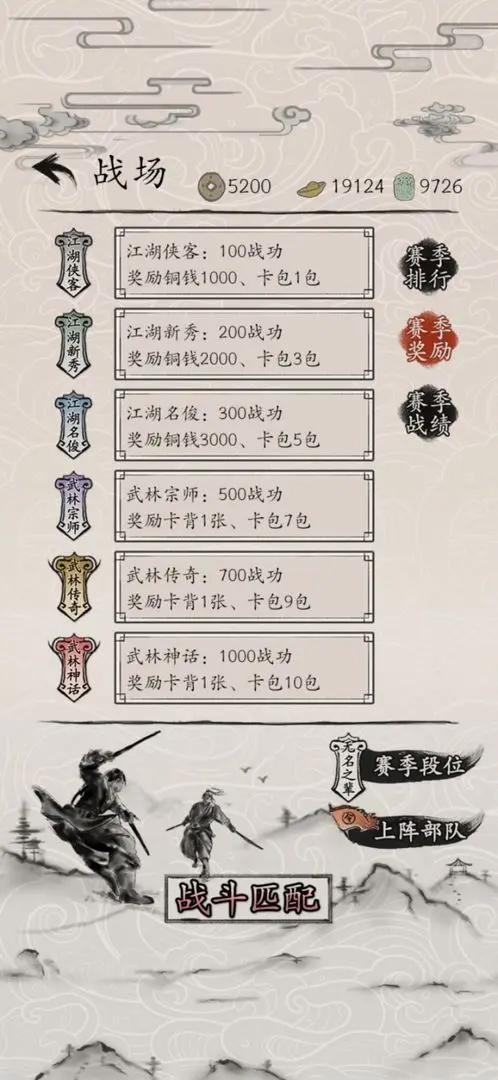 战场 5200 19124 9726
江湖侠客
江湖侠客：100战功
奖励铜钱1000、卡包1包
赛季
排行
江湖新秀
江湖新秀：200战功
奖励铜钱2000、卡包3包
赛季
奖励
江湖名俊
江湖名俊：300战功
奖励铜钱3000、卡包5包
赛季
战绩
武林宗师
武林宗师：500战功
奖励卡背1张、卡包7包
武林传奇
武林传奇：700战功
奖励卡背1张、卡包9包
武林神话
武林神话：1000战功
奖励卡背1张、卡包10包
无名之辈
赛季段位
上阵部队
战斗匹配